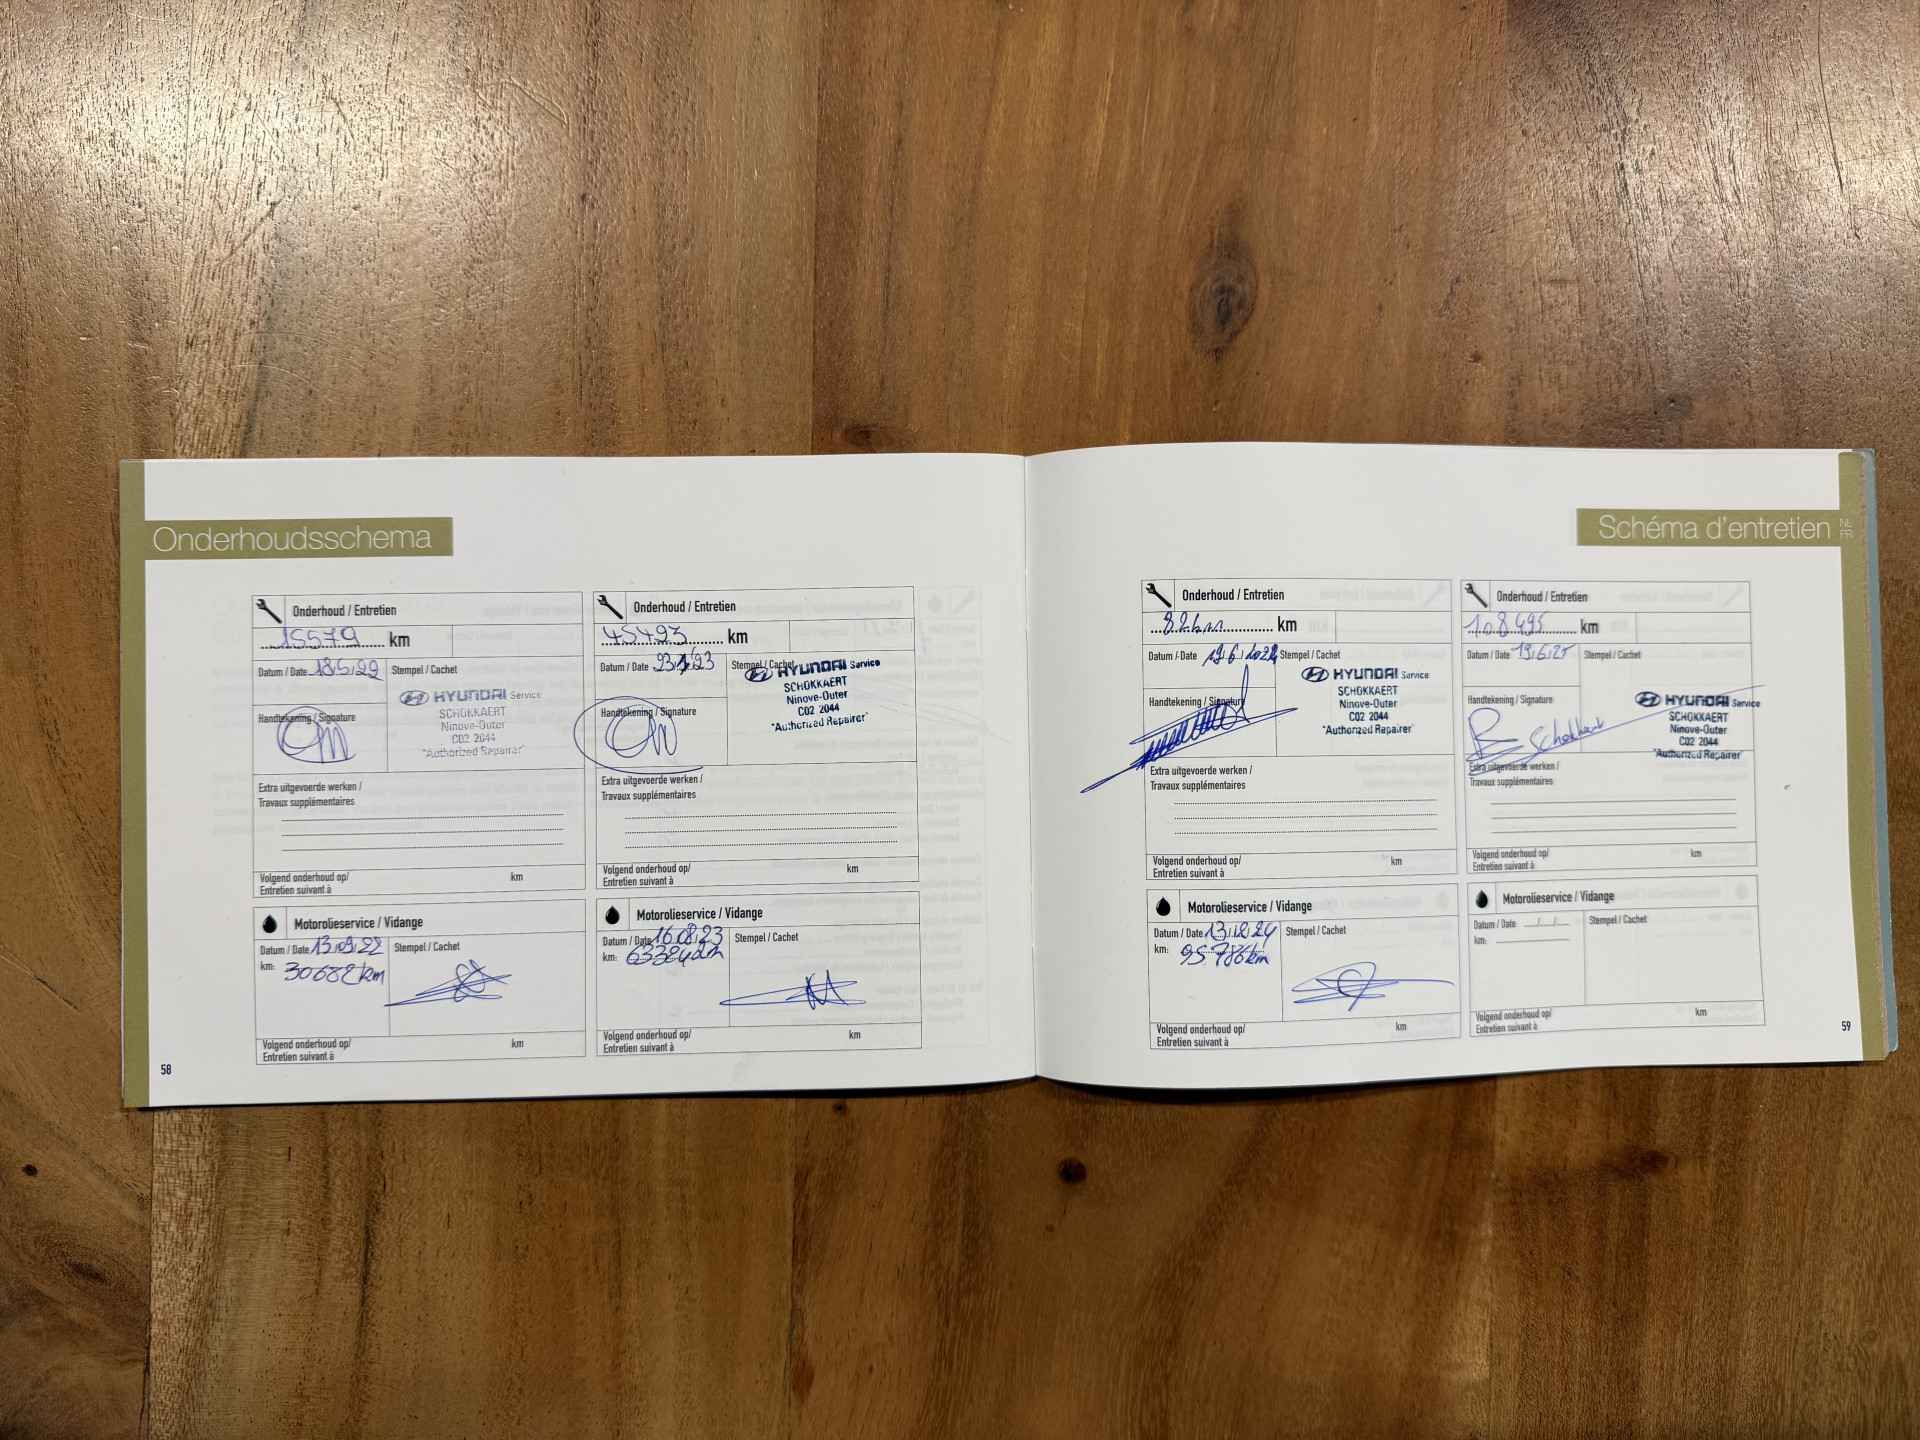 Onderhoudsschema
Onderhoud / Entretien
15579 km
Datum / Date 18/5/22
Stempel / Cachet
HYUNDAI Service
SCHOKKAERT
Ninove-Outer
C02 2044
"Authorized Repairer"
Handtekening / Signature
Extra uitgevoerde werken /
Travaux supplémentaires
Volgend onderhoud op/ km
Entretien suivant à
Motorolieservice / Vidange
Datum / Date 13/09/22
Stempel / Cachet
km: 30682km
Volgend onderhoud op/ km
Entretien suivant à
58
Onderhoud / Entretien
45493 km
Datum / Date
Stempel / Cachet
HYUNDAI Service
SCHOKKAERT
Ninove-Outer
C02 2044
"Authorized Repairer"
Handtekening / Signature
Extra uitgevoerde werken /
Travaux supplémentaires
Volgend onderhoud op/ km
Entretien suivant à
Motorolieservice / Vidange
Datum / Date 16/08/23
Stempel / Cachet
km:
Volgend onderhoud op/ km
Entretien suivant à
Schéma d'entretien
NL
FR
Onderhoud / Entretien
km
Datum / Date
Stempel / Cachet
HYUNDAI Service
SCHOKKAERT
Ninove-Outer
C02 2044
"Authorized Repairer"
Handtekening / Signature
Extra uitgevoerde werken /
Travaux supplémentaires
Volgend onderhoud op/ km
Entretien suivant à
Motorolieservice / Vidange
Datum / Date 13/12/24
Stempel / Cachet
km: 95786km
Volgend onderhoud op/ km
Entretien suivant à
Onderhoud / Entretien
108495 km
Datum / Date 19/6/25
Stempel / Cachet
HYUNDAI Service
SCHOKKAERT
Ninove-Outer
C02 2044
"Authorized Repairer"
Handtekening / Signature
Schokkaert
Extra uitgevoerde werken /
Travaux supplémentaires
Volgend onderhoud op/ km
Entretien suivant à
Motorolieservice / Vidange
Datum / Date __/__/__
Stempel / Cachet
km:
Volgend onderhoud op/ km
Entretien suivant à
59